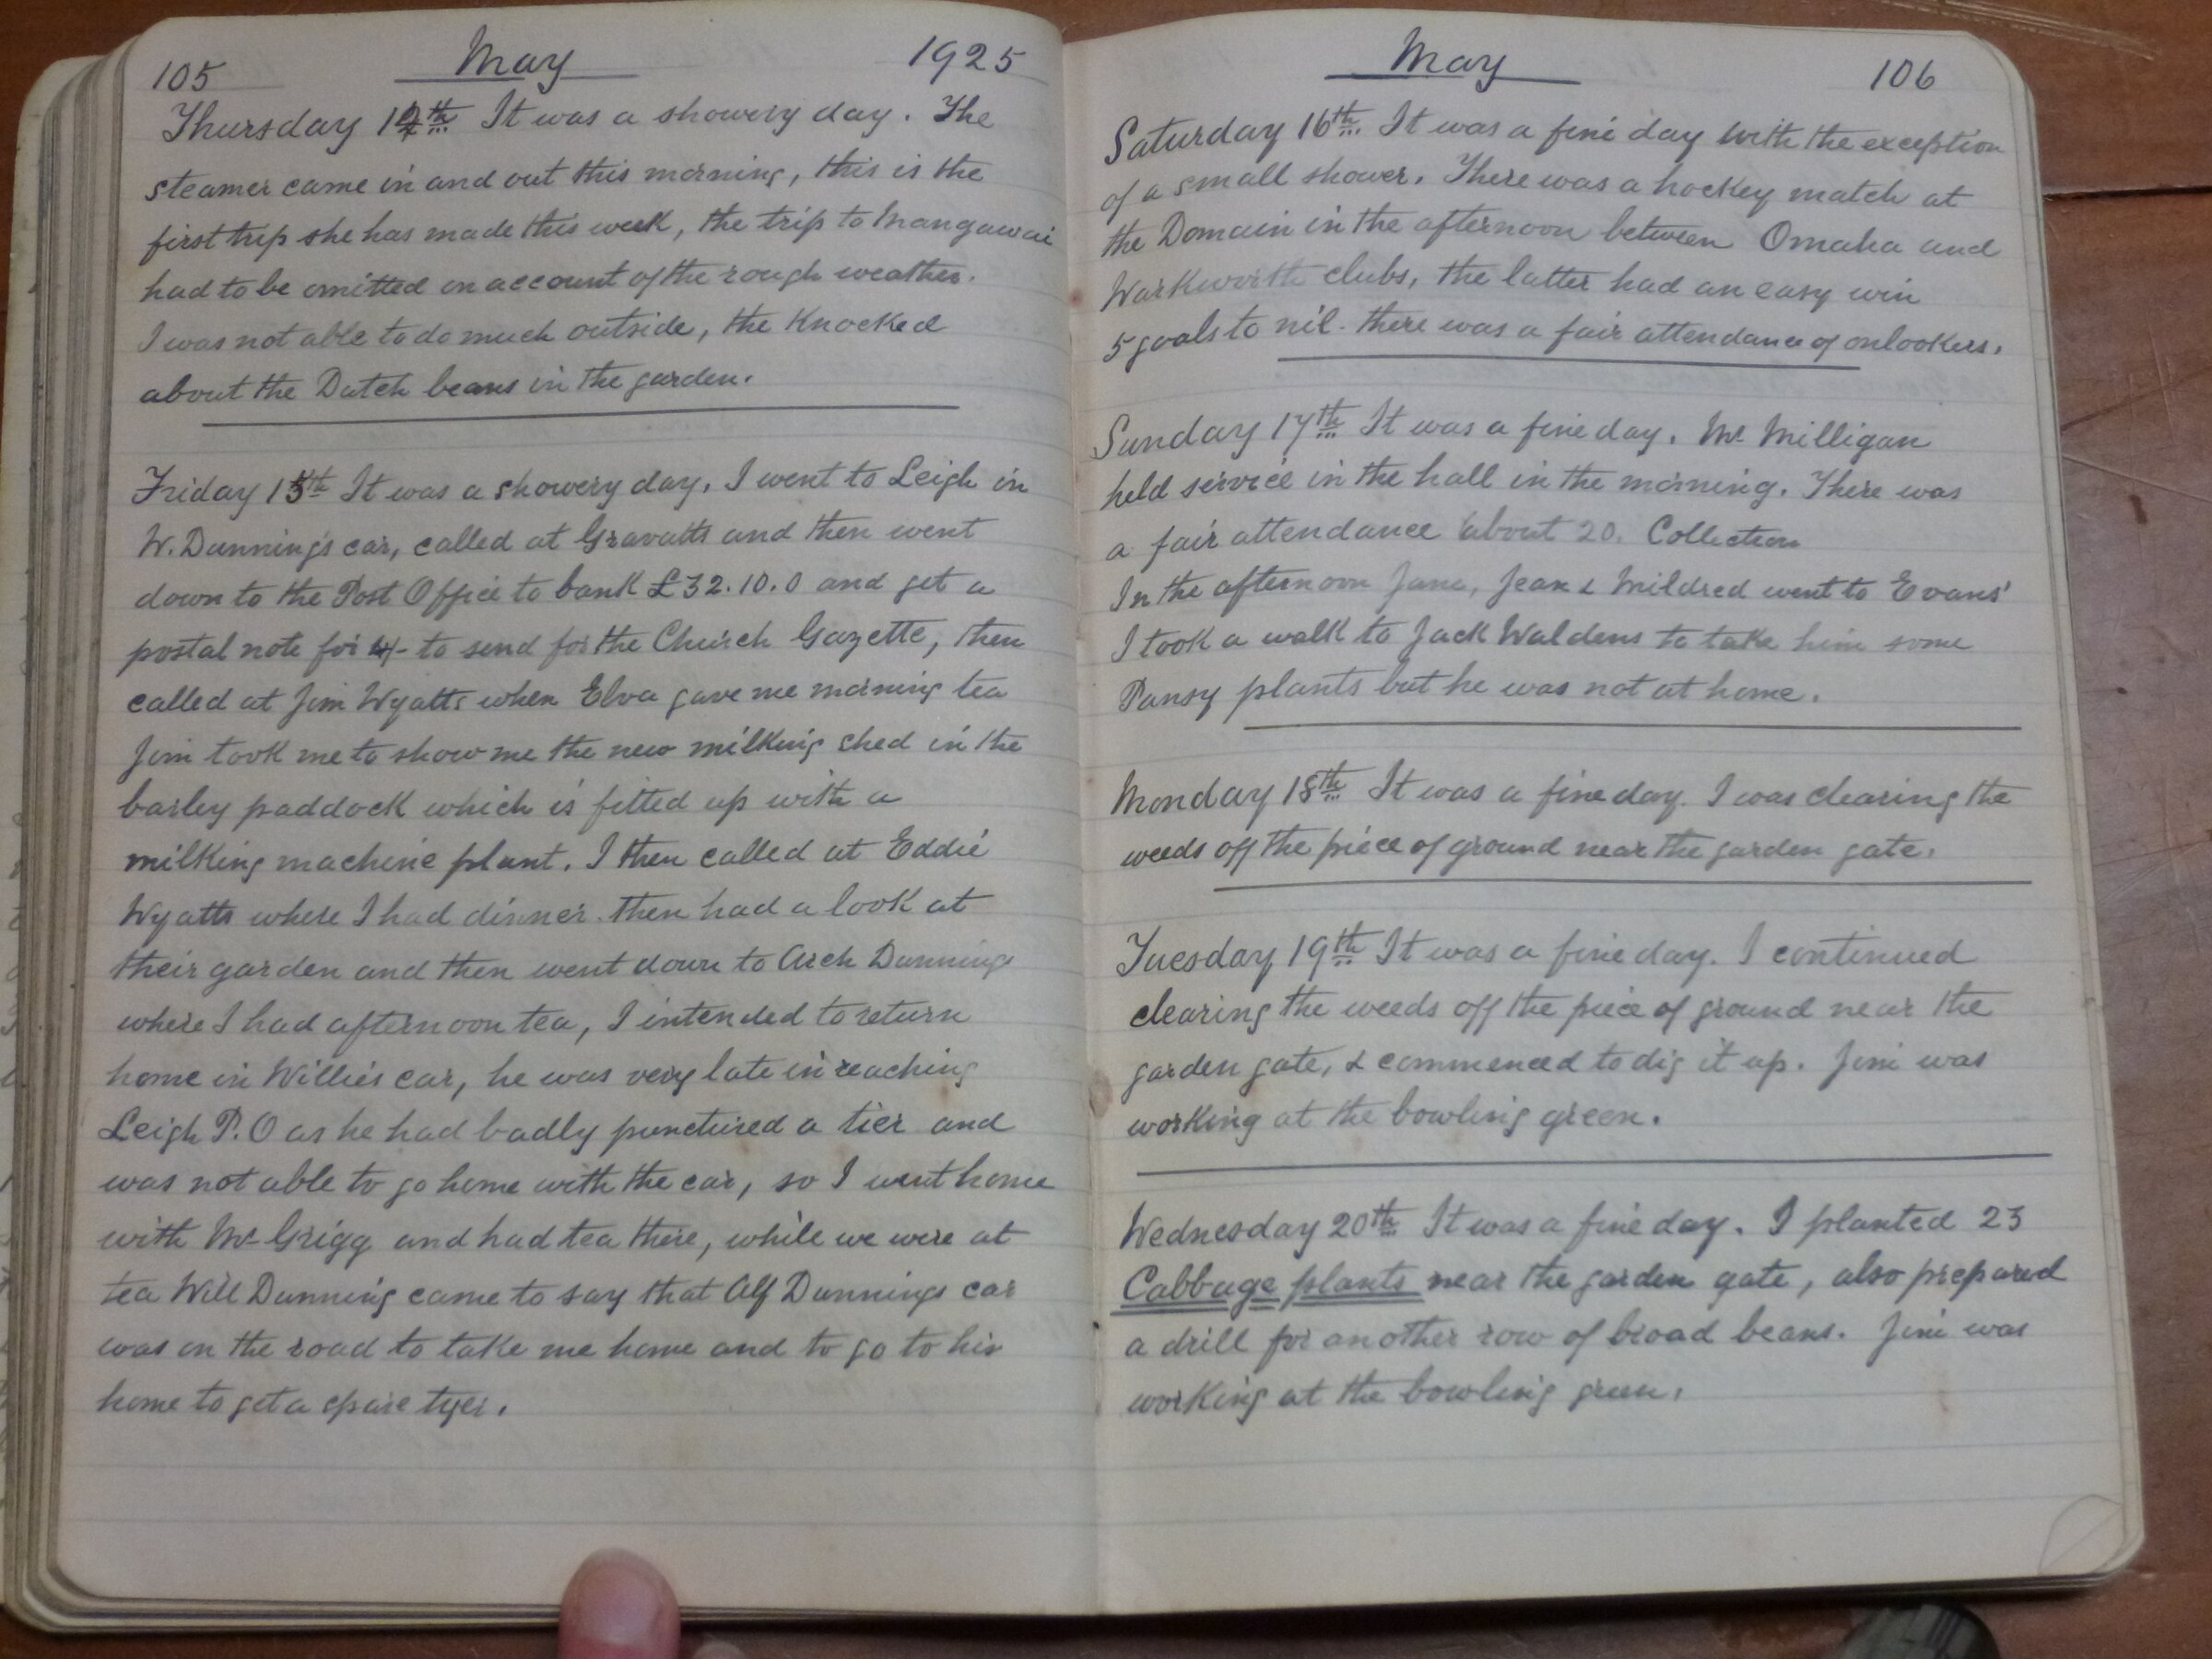 105 May 1925
Thursday 14th It was a showery day. The
steamer came in and out this morning, this is the
first trip she has made this week, the trip to Mangawai
had to be omitted on account of the rough weather.
I was not able to do much outside, the Knocked
about the Dutch beans in the garden.
Friday 15th It was a showery day. I went to Leigh in
W. Dunning's car, called at Gravatts and then went
down to the Post Office to bank £32.10.0 and get a
postal note for 4/- to send for the Church Gazette, then
called at Jim Wyatts when Elva gave me morning tea
Jim took me to show me the new milking shed in the
barley paddock which is fitted up with a
milking machine plant. I then called at Eddie
Wyatts where I had dinner. then had a look at
their garden and then went down to Arch Dunnings
where I had afternoon tea, I intended to return
home in Willie's car, he was very late in reaching
Leigh P.O as he had badly punctured a tier and
was not able to go home with the car, so I went home
with Mr Grigg and had tea there, while we were at
tea Will Dunning came to say that Alf Dunnings car
was on the road to take me home and to go to his
home to get a spare tyer.
May 106
Saturday 16th. It was a fine day with the exception
of a small shower. There was a hockey match at
the Domain in the afternoon between Omaha and
Warkworth clubs, the latter had an easy win
5 goals to nil. there was a fair attendance of onlookers.
Sunday 17th It was a fine day. Mr Milligan
held service in the hall in the morning. There was
a fair attendance about 20. Collection
In the afternoon Jane, Jean & Mildred went to Evans'
I took a walk to Jack Waldens to take him some
Pansy plants but he was not at home.
Monday 18th It was a fine day. I was clearing the
weeds off the piece of ground near the garden gate.
Tuesday 19th It was a fine day. I continued
clearing the weeds off the piece of ground near the
garden gate, & commenced to dig it up. Jim was
working at the bowling green.
Wednesday 20th It was a fine day. I planted 23
Cabbage plants near the garden gate, also prepared
a drill for another row of broad beans. Jim was
working at the bowling green.